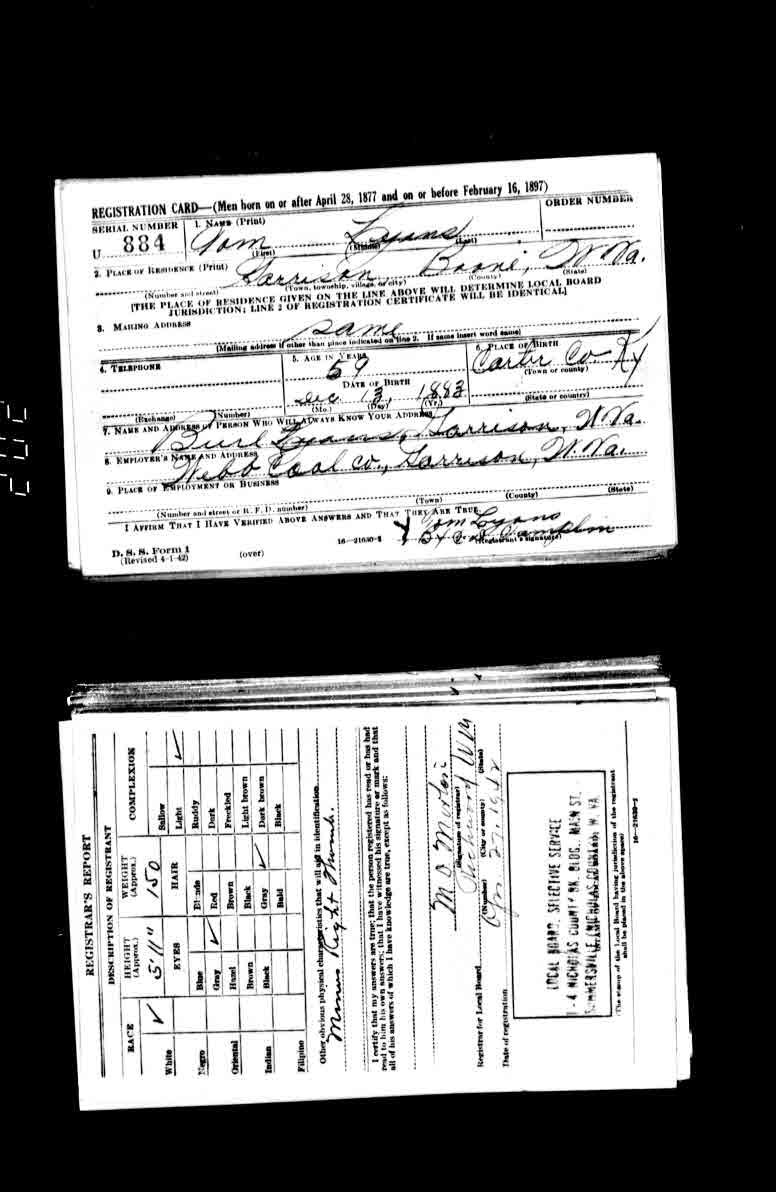 REGISTRATION CARD—(Men born on or after April 28, 1877 and on or before February 16, 1897)
SERIAL NUMBER 1. NAME (Print) ORDER NUMBER
U 884 Tom Lyons
(First) (Middle) (Last)
2. PLACE OF RESIDENCE (Print)
Garrison Boone, W Va.
(Number and street) (Town, township, village, or city) (County) (State)
[THE PLACE OF RESIDENCE GIVEN ON THE LINE ABOVE WILL DETERMINE LOCAL BOARD
JURISDICTION; LINE 2 OF REGISTRATION CERTIFICATE WILL BE IDENTICAL]
3. MAILING ADDRESS
same
(Mailing address if other than place indicated on line 2. If same insert word same)
4. TELEPHONE 5. AGE IN YEARS 6. PLACE OF BIRTH
59 Carter Co. Ky
(Town or county)
DATE OF BIRTH
Dec. 13, 1883
(Mo.) (Day) (Yr.) (State or country)
(Exchange) (Number)
7. NAME AND ADDRESS OF PERSON WHO WILL ALWAYS KNOW YOUR ADDRESS
Burl Lyons, Garrison, W. Va.
8. EMPLOYER'S NAME AND ADDRESS
Webb Coal Co., Garrison, W. Va.
9. PLACE OF EMPLOYMENT OR BUSINESS
(Number and street or R. F. D. number) (Town) (County) (State)
I AFFIRM THAT I HAVE VERIFIED ABOVE ANSWERS AND THAT THEY ARE TRUE.
Tom Lyons
D. S. S. Form 1
(Revised 4-1-42) (over) 16—21630-2 (Registrant's signature)
REGISTRAR'S REPORT
DESCRIPTION OF REGISTRANT
RACE HEIGHT (Approx.) WEIGHT (Approx.) COMPLEXION
5' 11" 150
White ✓ EYES HAIR Sallow
Light ✓
Negro Blue Blonde Ruddy
Gray ✓ Red Dark
Oriental Hazel Brown Freckled
Brown Black Light brown
Indian Black Gray ✓ Dark brown
Filipino Bald Black
Other obvious physical characteristics that will aid in identification
Minus Right Thumb.
I certify that my answers are true; that the person registered has read or has had
read to him his own answers; that I have witnessed his signature or mark and that
all of his answers of which I have knowledge are true, except as follows:
(Signature of registrar)
Registrar for Local Board
(Number) (City or county) (State)
Date of registration Apr 27. 1942
LOCAL BOARD, SELECTIVE SERVICE
NICHOLAS COUNTY BK. BLDG. MAIN ST.
SUMMERSVILLE (NICHOLAS COUNTY), W. VA.
(STAMP OF LOCAL BOARD)
(The stamp of the Local Board having jurisdiction of the registrant
shall be placed in the above space)
16—21630-2